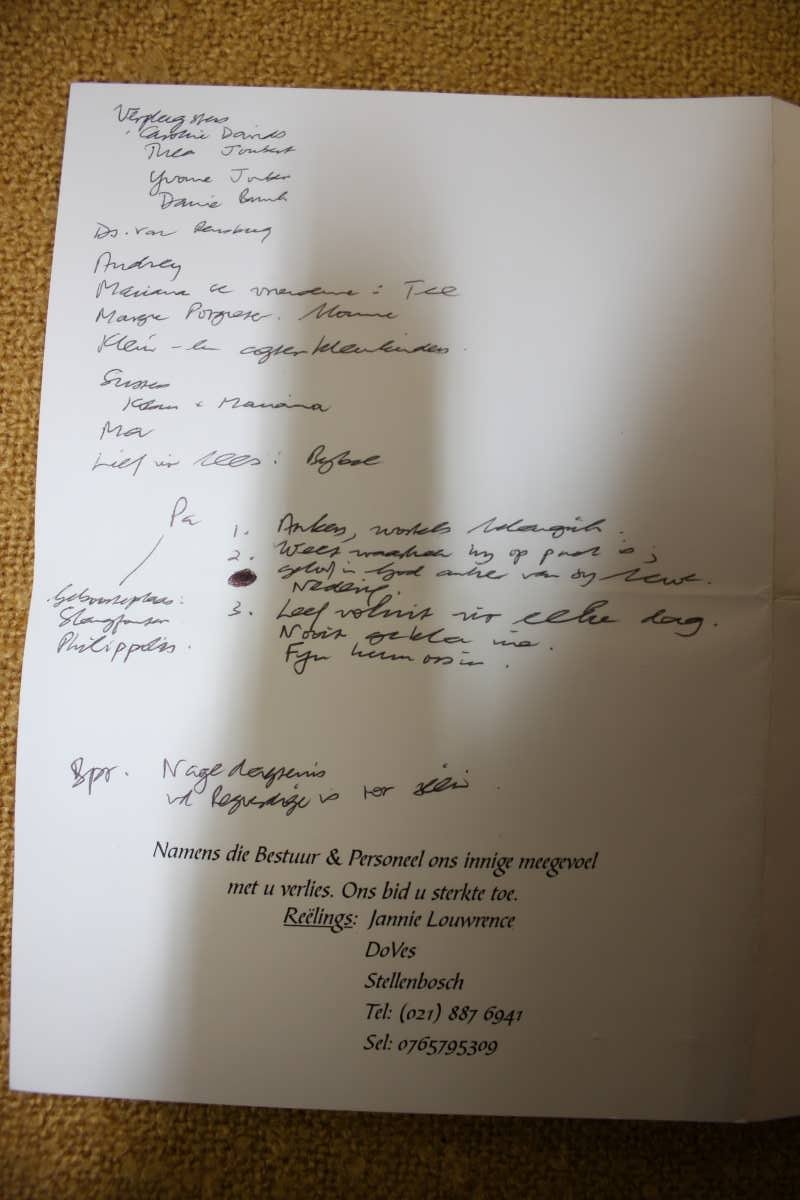 Verpleegsters
Caroline Davids
Thea Joubert
Yvonne Jonker
Danie
Ds. van Rensburg
Audrey
Mariana se vriendinne : Tee
Margie
Klein - en agterkleinkinders
Susters
+ Mariana
Ma
Lief vir lees : Bybel
Pa
1. Anker, wortels belangrik.
2. Weet waarheen hy op pad is ;
geloof in God anker van sy lewe.
Nederig.
Geboorteplaas :
3. Leef voluit vir elke dag.
Philippolis.
Nooit gekla nie.
Fyn humorsin.
Spr. Nagedagtenis
vd Regverdige is tot seën
Namens die Bestuur & Personeel ons innige meegevoel
met u verlies. Ons bid u sterkte toe.
Reëlings: Jannie Louwrence
DoVes
Stellenbosch
Tel: (021) 887 6941
Sel: 0765795309